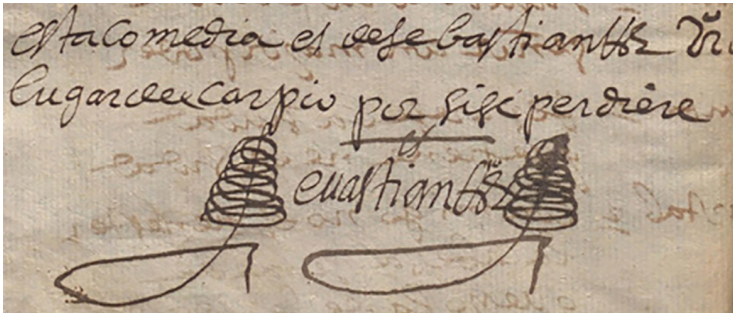 esta comedia es de sebastian ffrz Vzo
lugar del carpio por si se perdiere
evastian ffrz